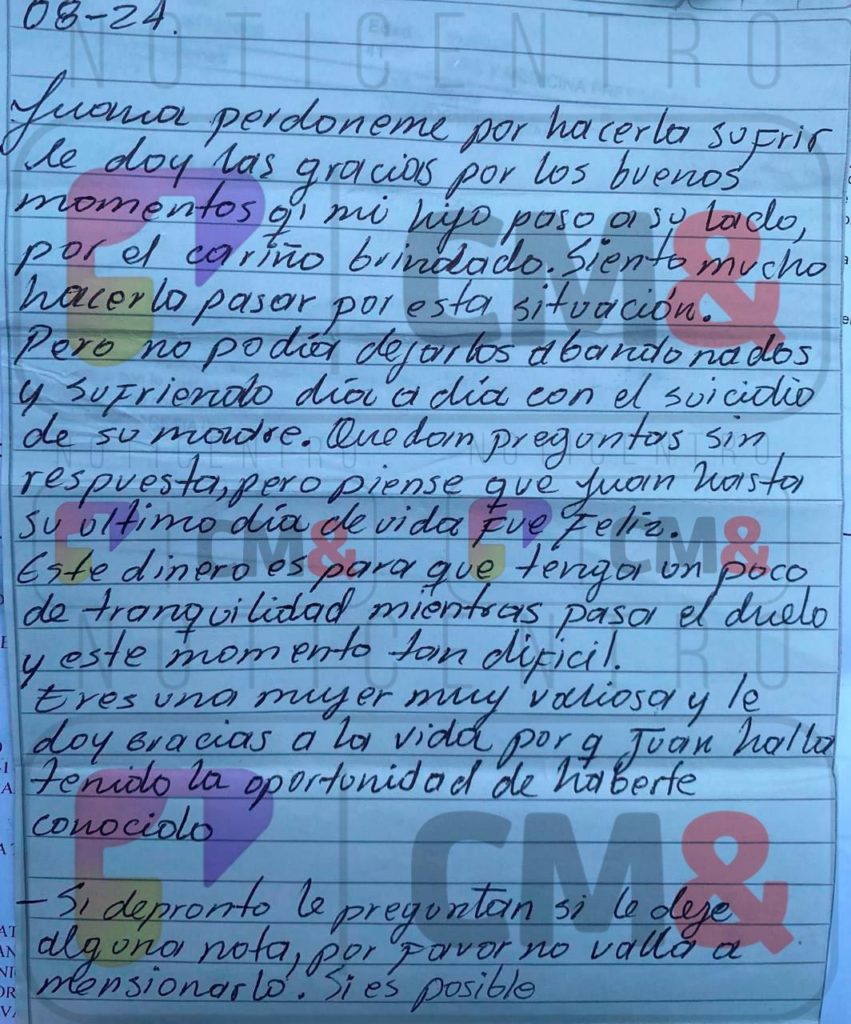 08-24.
Juana perdoneme por hacerla sufrir
le doy las gracias por los buenos
momentos q' mi hijo paso a su lado,
por el cariño brindado. Siento mucho
hacerla pasar por esta situación.
Pero no podia dejarlos abandonados
y sufriendo día a día con el suicidio
de su madre. Quedan preguntas sin
respuesta, pero piense que Juan hasta
su ultimo día de vida fue Feliz.
Este dinero es para que tenga un poco
de tranquilidad mientras pasa el duelo
y este momento tan dificil.
Eres una mujer muy valiosa y le
doy gracias a la vida por q Juan halla
tenido la oportunidad de haberte
conocido
- Si depronto le preguntan si le deje
alguna nota, por favor no valla a
mensionarlo. Si es posible
NOTICENTRO
CM&
NOTICENTRO
NOTICENTRO
CM&
CM&
NOTICENTRO
CM&